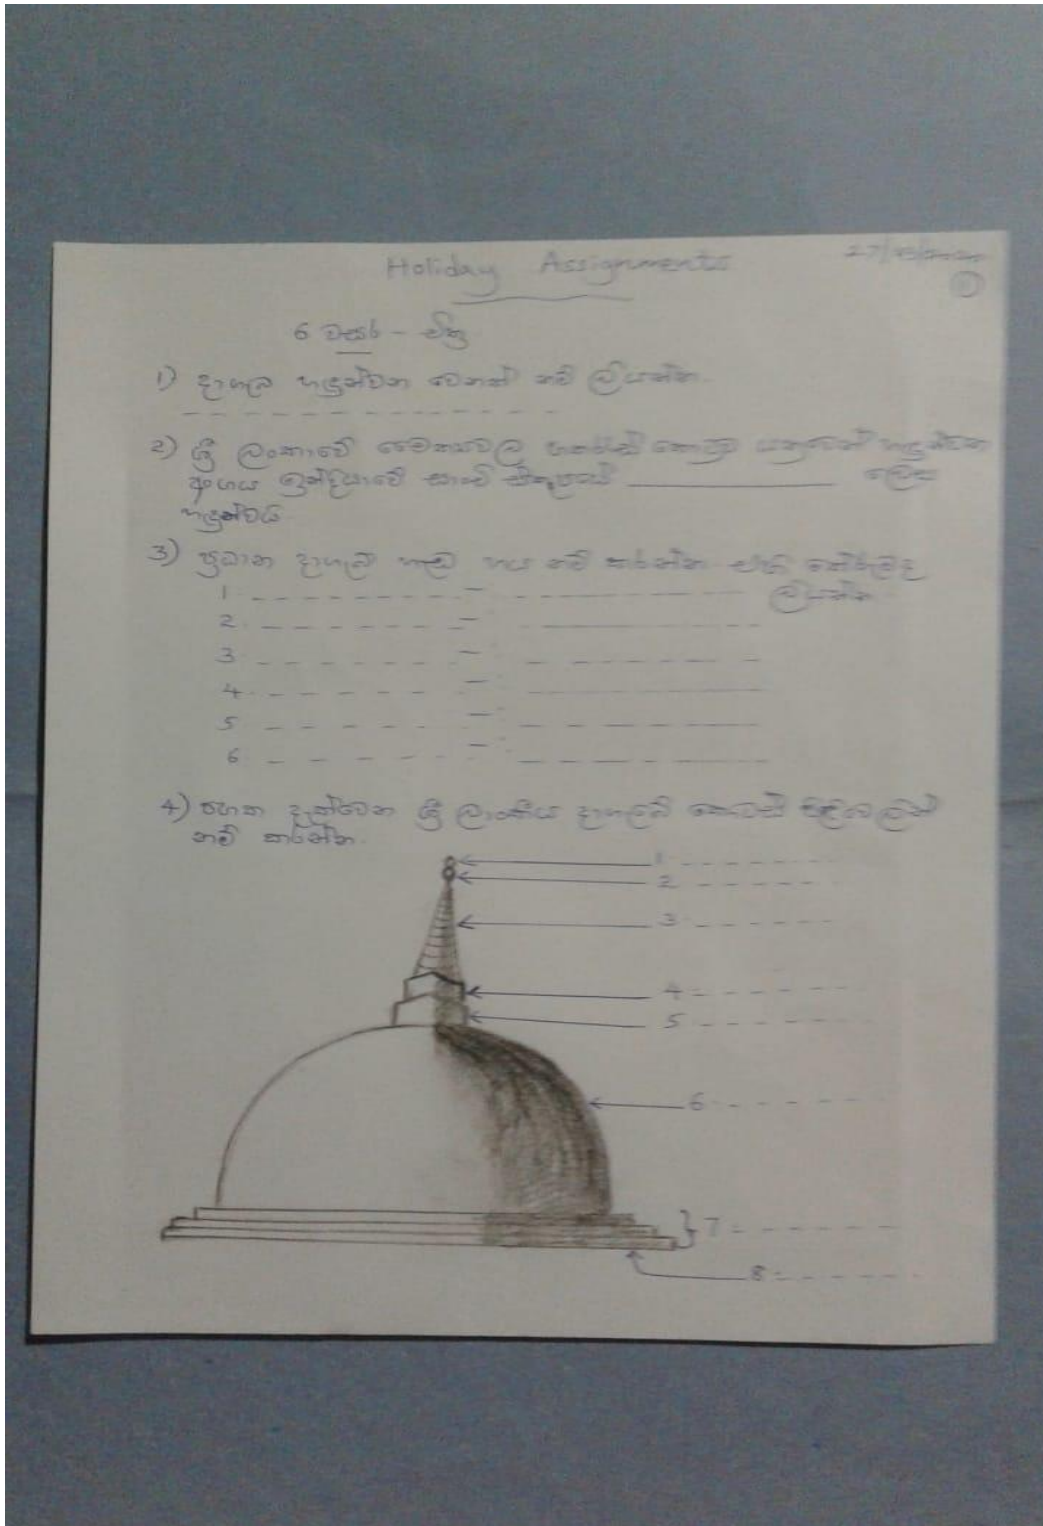 Holiday Assignments
27/03/2020
1
6 වසර - චිත්‍ර
1) දාගැබ හඳුන්වන වෙනත් නම් ලියන්න.
2) ශ්‍රී ලංකාවේ චෛත්‍යවල හතරැස් කොටුව යනුවෙන් හඳුන්වන
අංගය ඉන්දියාවේ සාංචි ස්තූපයේ ලෙස
හඳුන්වයි.
3) ප්‍රධාන දාගැබ් හැඩ හය නම් කරන්න. එහි තේරුමද
1 - ලියන්න.
2 -
3 -
4 -
5 -
6 -
4) පහත දැක්වෙන ශ්‍රී ලාංකීය දාගැබේ කොටස් පිළිවෙලින්
නම් කරන්න.
1
2
3
4
5
6
7
8